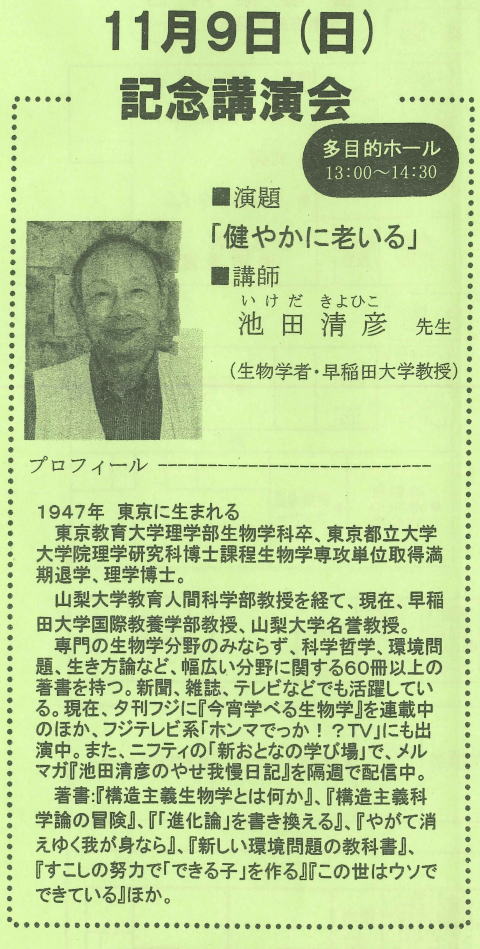 11月9日(日)
記念講演会
多目的ホール
13:00～14:30
■演題
「健やかに老いる」
■講師
いけだ きよひこ
池田清彦 先生
(生物学者・早稲田大学教授)
プロフィール ----------------------------
1947年 東京に生まれる
東京教育大学理学部生物学科卒、東京都立大学
大学院理学研究科博士課程生物学専攻単位取得満
期退学、理学博士。
山梨大学教育人間科学部教授を経て、現在、早稲
田大学国際教養学部教授、山梨大学名誉教授。
専門の生物学分野のみならず、科学哲学、環境問
題、生き方論など、幅広い分野に関する60冊以上の
著書を持つ。新聞、雑誌、テレビなどでも活躍してい
る。現在、夕刊フジに『今宵学べる生物学』を連載中
のほか、フジテレビ系「ホンマでっか！？TV」にも出
演中。また、ニフティの「新おとなの学び場」で、メル
マガ『池田清彦のやせ我慢日記』を隔週で配信中。
著書:『構造主義生物学とは何か』、『構造主義科
学論の冒険』、『「進化論」を書き換える』、『やがて消
えゆく我が身なら』、『新しい環境問題の教科書』、
『すこしの努力で「できる子」を作る』『この世はウソで
できている』ほか。